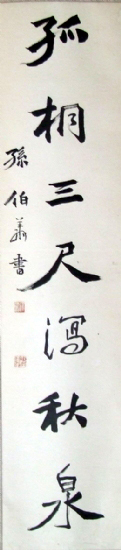 孤桐三尺瀉秋泉
孫伯翔書